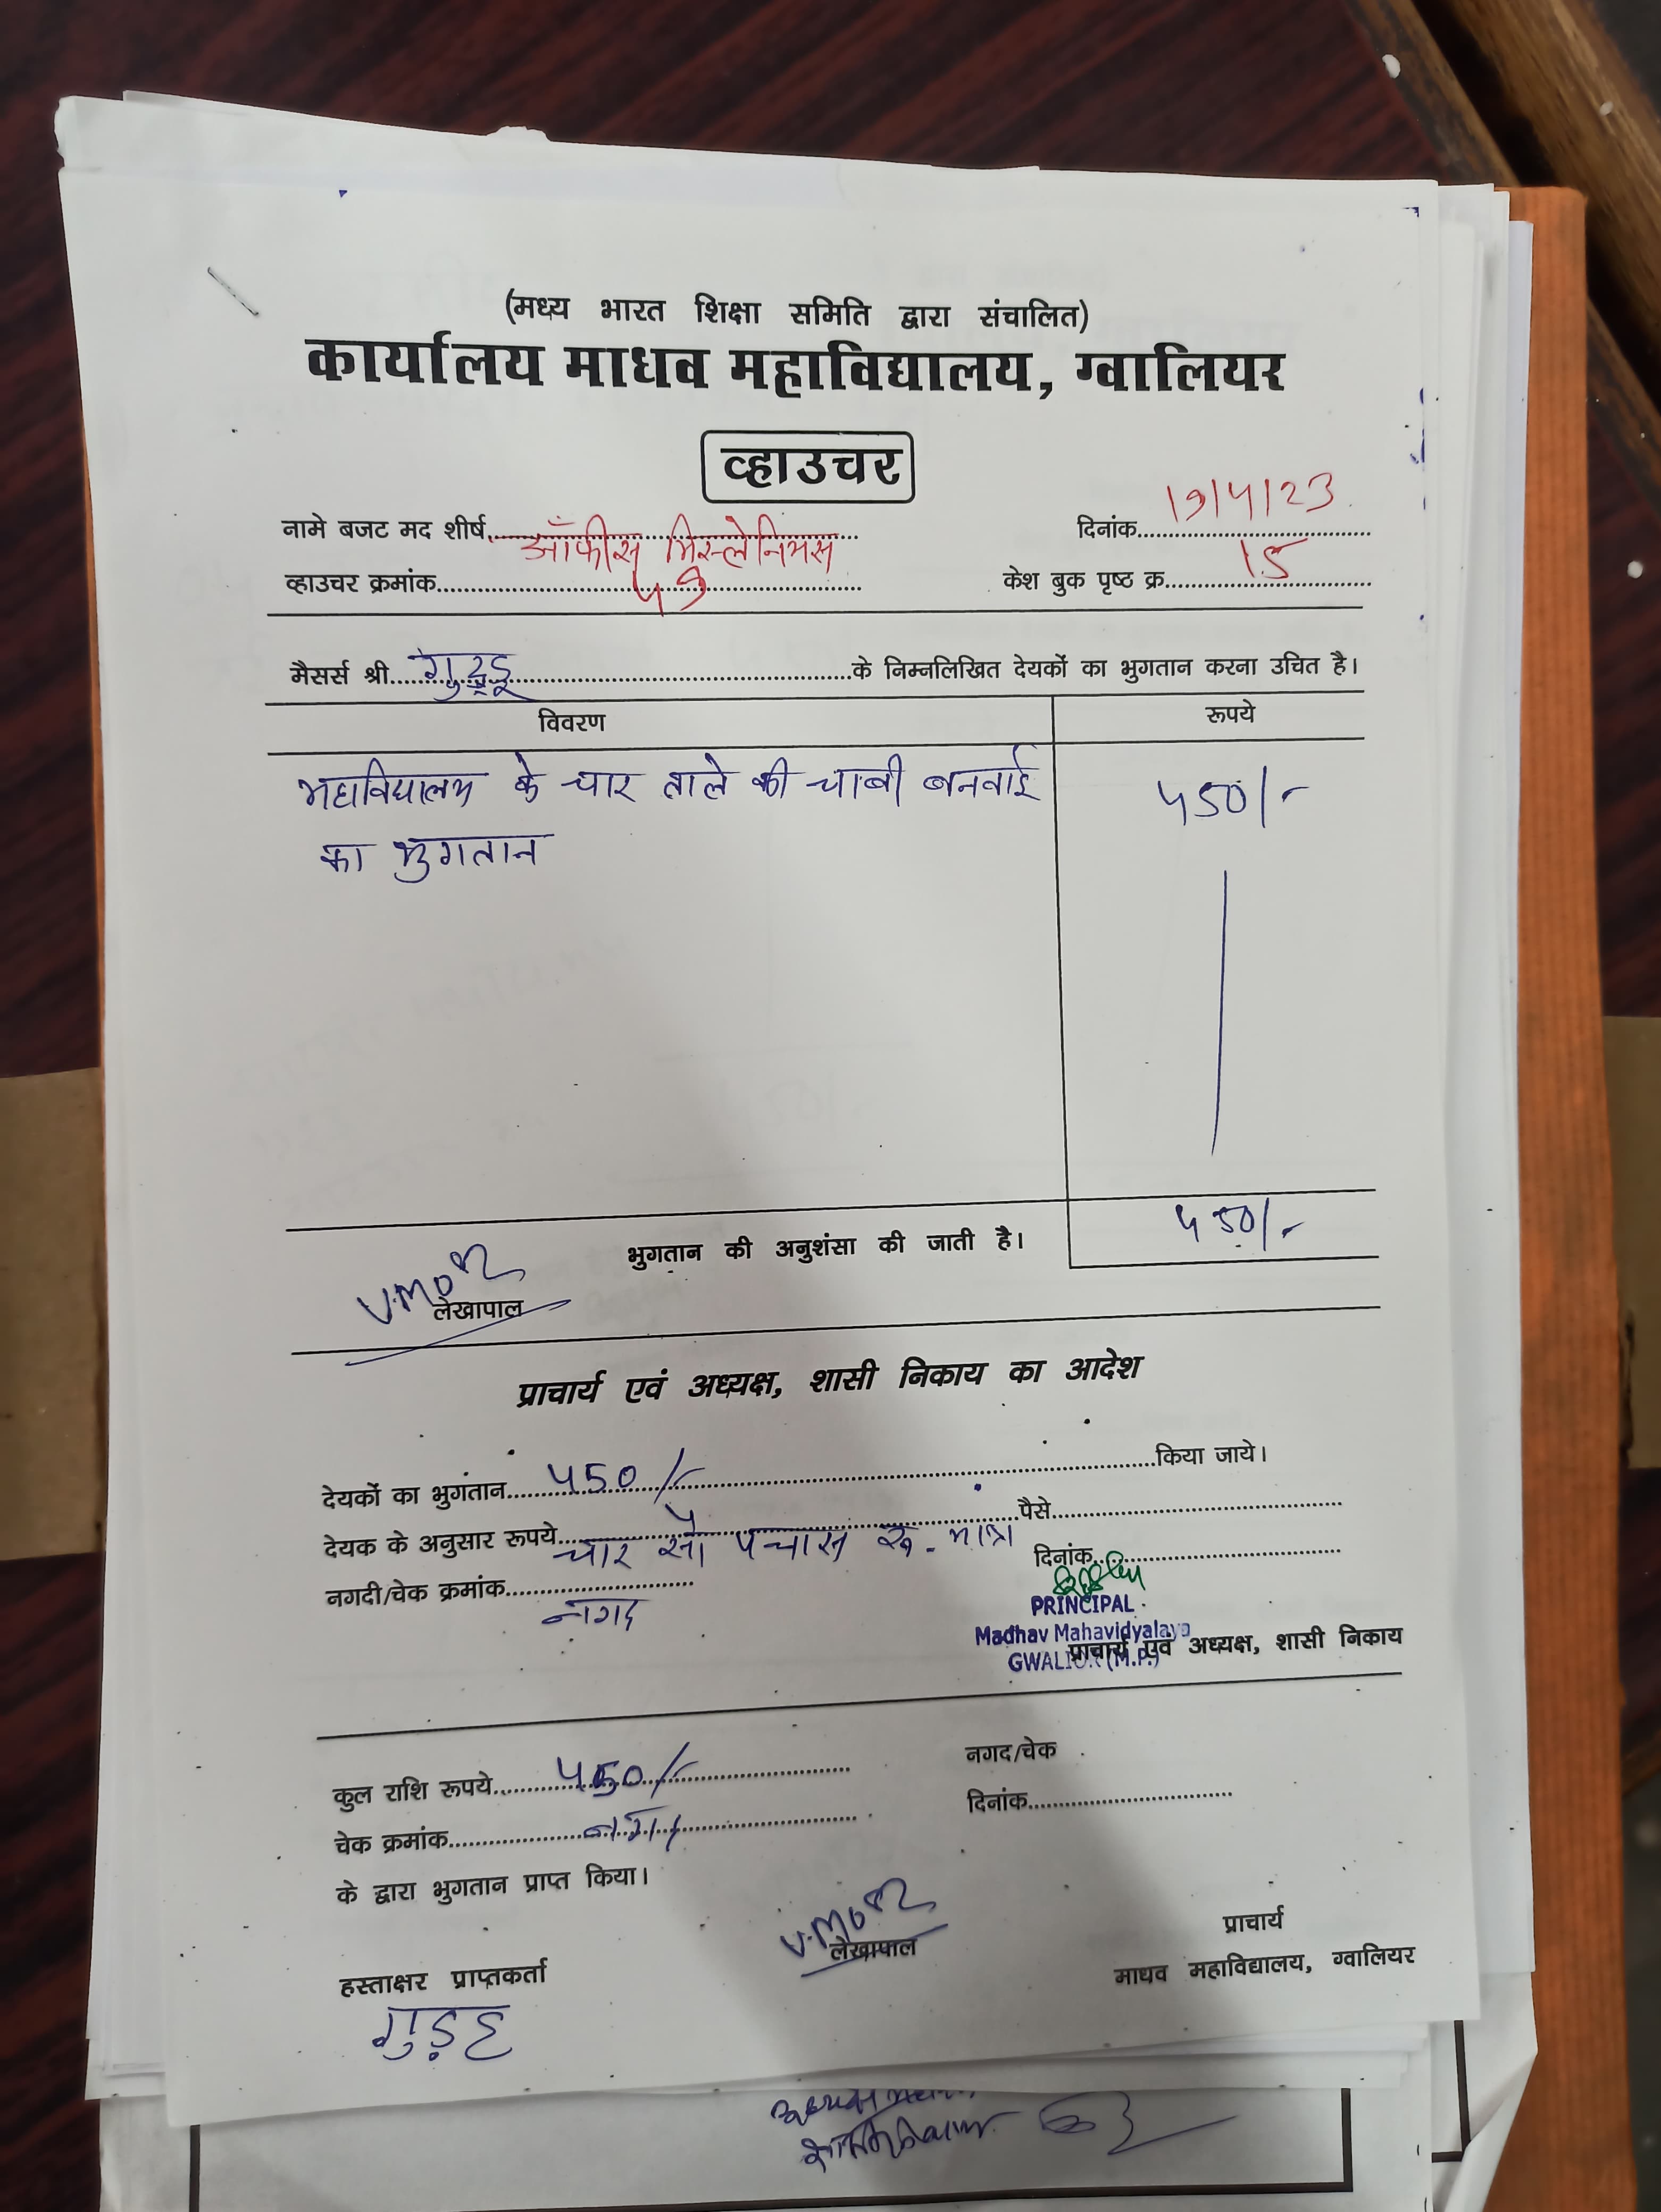 (मध्य भारत शिक्षा समिति द्वारा संचालित)
कार्यालय माधव महाविद्यालय, ग्वालियर
व्हाउचर
नामे बजट मद शीर्ष ऑफीस मिस्लेनियस दिनांक 19/4/23
व्हाउचर क्रमांक 49 केश बुक पृष्ठ क्र. 15
मैसर्स श्री गुड्डू के निम्नलिखित देयकों का भुगतान करना उचित है।
विवरण रूपये
महाविद्यालय के चार ताले की चाबी बनवाई 450/-
का भुगतान
450/-
भुगतान की अनुशंसा की जाती है।
लेखापाल
प्राचार्य एवं अध्यक्ष, शासी निकाय का आदेश
देयकों का भुगंतान 450/- किया जाये।
देयक के अनुसार रूपये चार सौ पचास रू. मात्र पैसे
दिनांक
नगदी/चेक क्रमांक नगद
PRINCIPAL
Madhav Mahavidyalaya
GWALIOR (M.P.)
प्राचार्य एवं अध्यक्ष, शासी निकाय
कुल राशि रूपये 450/- नगद/चेक
चेक क्रमांक नगद दिनांक
के द्वारा भुगतान प्राप्त किया।
लेखापाल
प्राचार्य
हस्ताक्षर प्राप्तकर्ता माधव महाविद्यालय, ग्वालियर